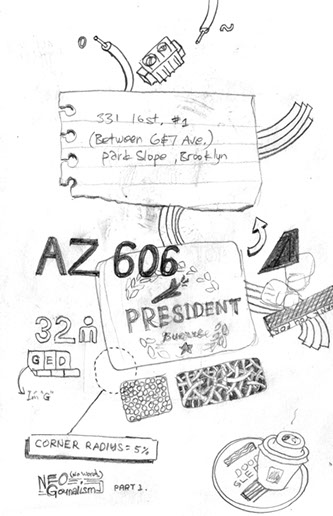 331 16st, #1
(Between 6&7 Ave.)
park Slope, Brooklyn
AZ 606
PRESIDENT
32m
GED
I'm "G"
CORNER RADIUS = 5%
NEO (No Word)
Gournalism
PART 1.